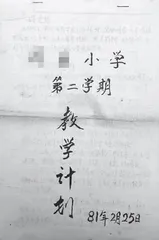 小学
第二学期
教学计划
81年2月25日